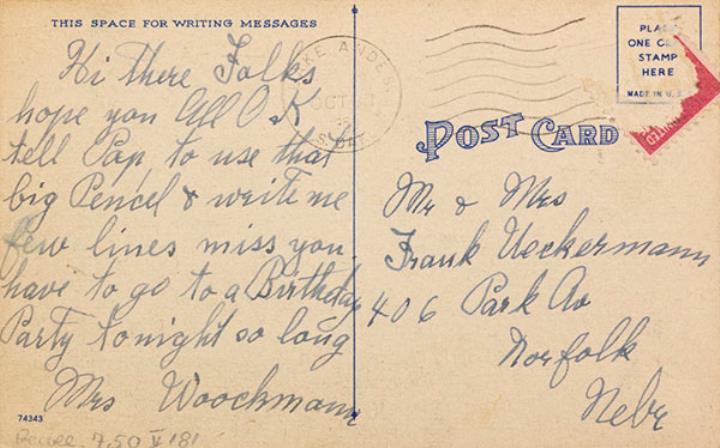 THIS SPACE FOR WRITING MESSAGES
Hi there Folks
hope you all O.K
tell Pap to use that
big Pencel & write me
few lines miss you
have to go to a Birthday
Party tonight so long
Mrs Woockmann
74343
7,50 V 181
LAKE ANDE
OCT
S. DAK
PLACE
ONE CENT
STAMP
HERE
MADE IN U.S.
UNITED
POST CARD
Mr & Mrs
Frank Ueckermann
406 Park Av
Norfolk
Nebr